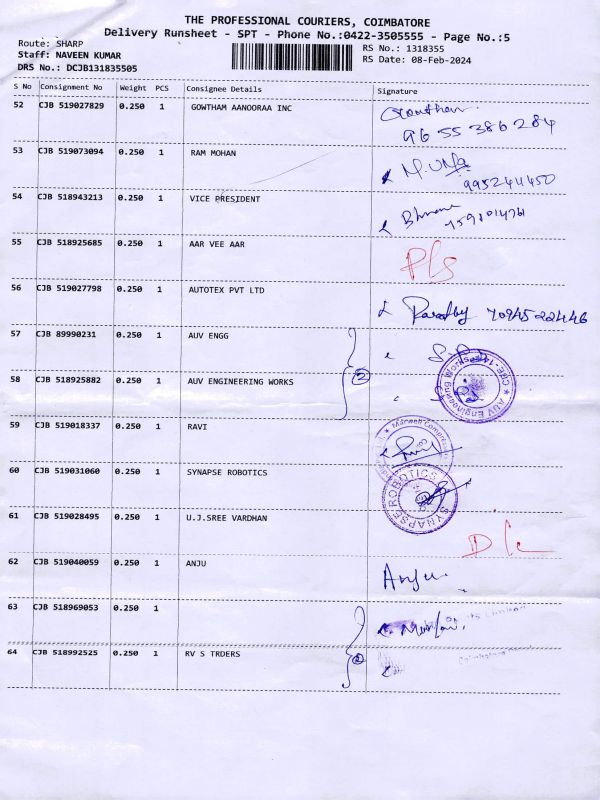 THE PROFESSIONAL COURIERS, COIMBATORE
Delivery Runsheet - SPT - Phone No.:0422-3505555 - Page No.:5
Route: SHARP RS No.: 1318355
Staff: NAVEEN KUMAR RS Date: 08-Feb-2024
DRS No.: DCJB131835505
S No Consignment No Weight PCS Consignee Details Signature
52 CJB 519027829 0.250 1 GOWTHAM AANOORAA INC Gowtham
96 55 386 284
53 CJB 519073094 0.250 1 RAM MOHAN
9952411450
54 CJB 518943213 0.250 1 VICE PRESIDENT
55 CJB 518925685 0.250 1 AAR VEE AAR
56 CJB 519027798 0.250 1 AUTOTEX PVT LTD 7094522446
57 CJB 89990231 0.250 1 AUV ENGG
58 CJB 518925882 0.250 1 AUV ENGINEERING WORKS 2
59 CJB 519018337 0.250 1 RAVI
60 CJB 519031060 0.250 1 SYNAPSE ROBOTICS SYNAPSE ROBOTICS
61 CJB 519028495 0.250 1 U.J.SREE VARDHAN
62 CJB 519040059 0.250 1 ANJU Anju
63 CJB 518969053 0.250 1
64 CJB 518992525 0.250 1 RV S TRDERS 2